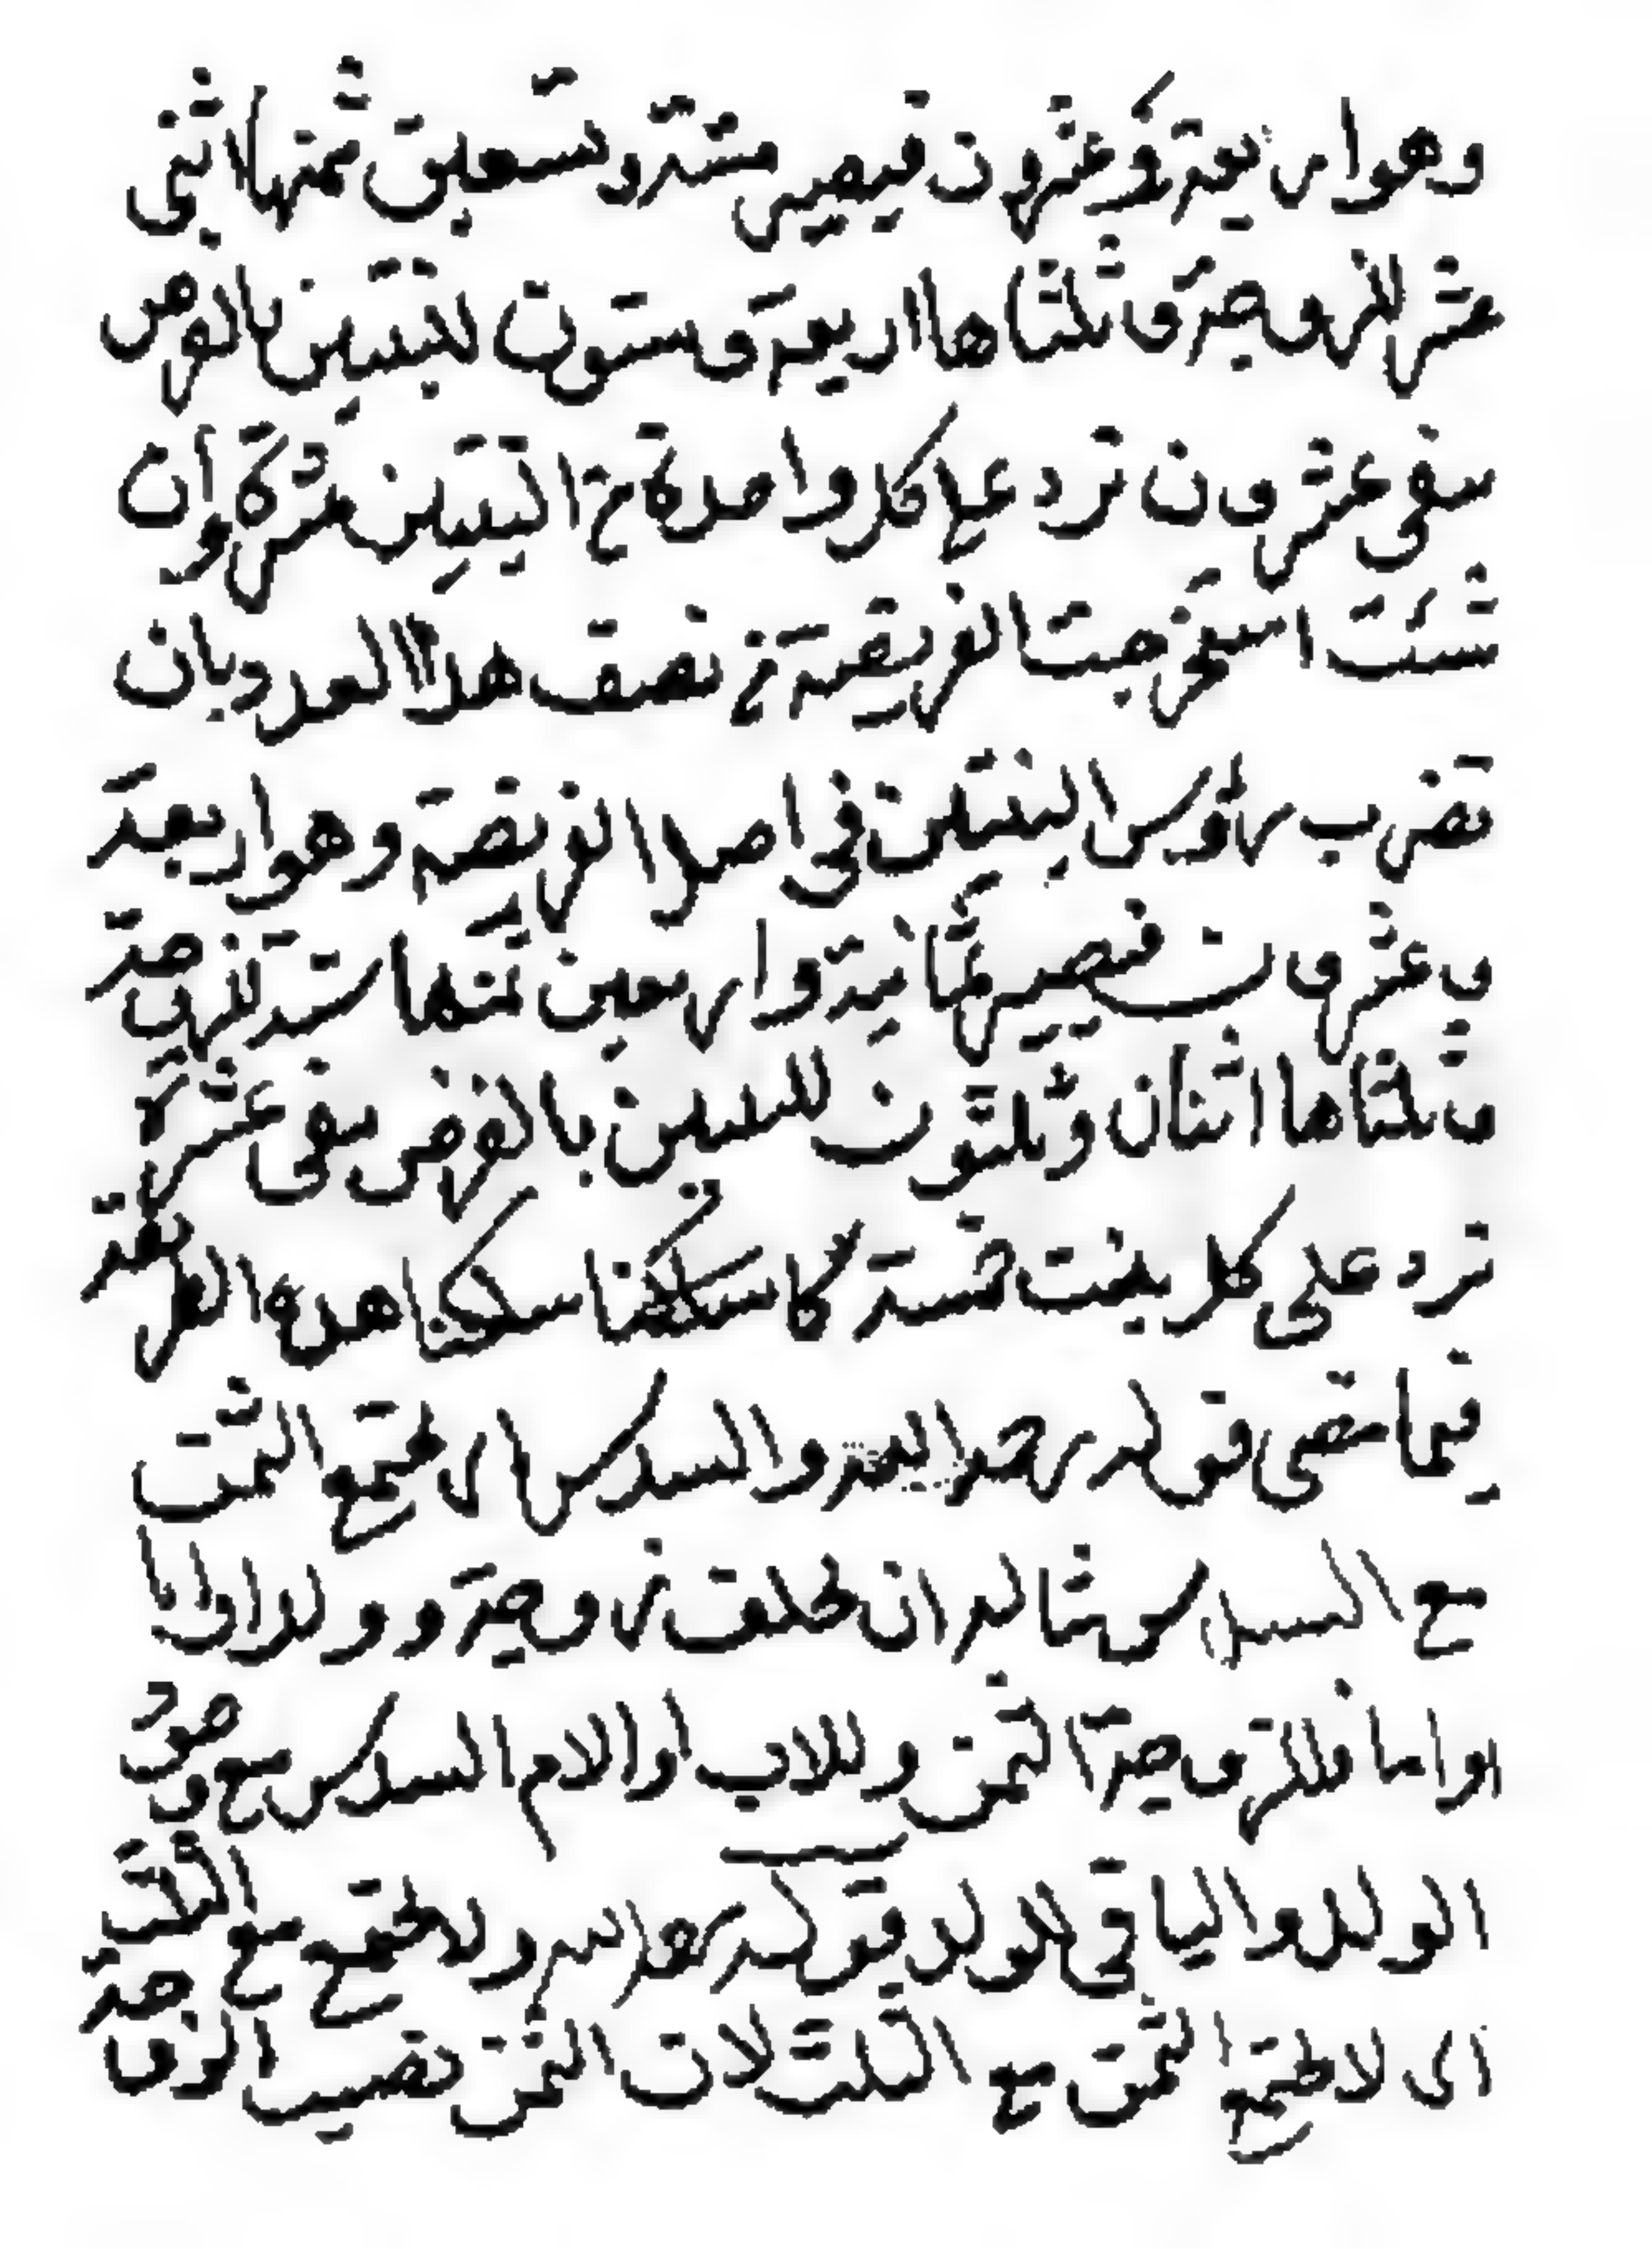 وهو اربعة وعشرون فيصير ستة وتسعين ثمنها اثنى
عشر للزوجة وثلثاها اربعة وستون للبنتين بالفرض
يبقى عشرون ترد على كل واحدة من البنتين عشرة وان
شئت استخرجت الفريضة من نصف هذا العدد بان
تضرب رؤس البنتين في اصل الفريضة وهو اربعة
وعشرون فيصير ثمانية واربعين ثمنها ستة للزوجة
وثلثاها اثنان وثلثون للبنتين بالفرض يبقى عشرة
ترد على كل بنت خمسة كما سكتنا سكتنا هذه الطريقة
فيما مضى قوله رحمه الله والسدس اى يجتمع الثمن
مع السدس مثاله ان يخلف زوجة وولدا وابا
او اما فللزوجة الثمن وللاب او الام السدس مع وجود
الولد والباقي للولد قوله ولا يجتمع مع الثلث
اى لا يجتمع الثمن مع الثلث لان الثمن نصيب الزوجة